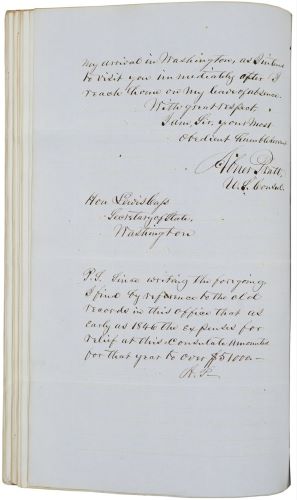 my arrival in Washington, as I intend
to visit you immediately after I
reach home on my leave of absence.
With great respect
I am, Sir, your most
Obedient humble servt
Abner Pratt,
U.S. Consul.
Hon Lewis Cass
Secretary of State,
Washington
P.S. Since writing the foregoing
I find by reference to the old
records in this office that as
early as 1846 the expenses for
relief at this Consulate amounted
for that year to over $51000 —
A. P.